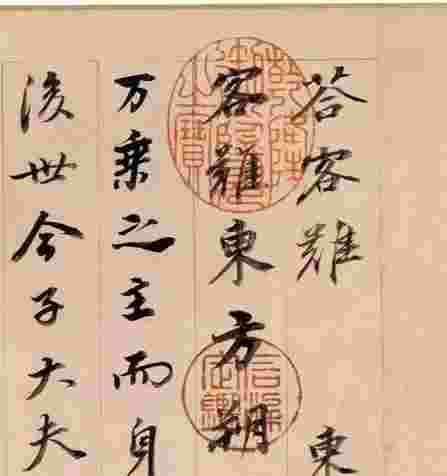 荅客難 東
客難東方朔
万乗之主而身
後世今子大夫